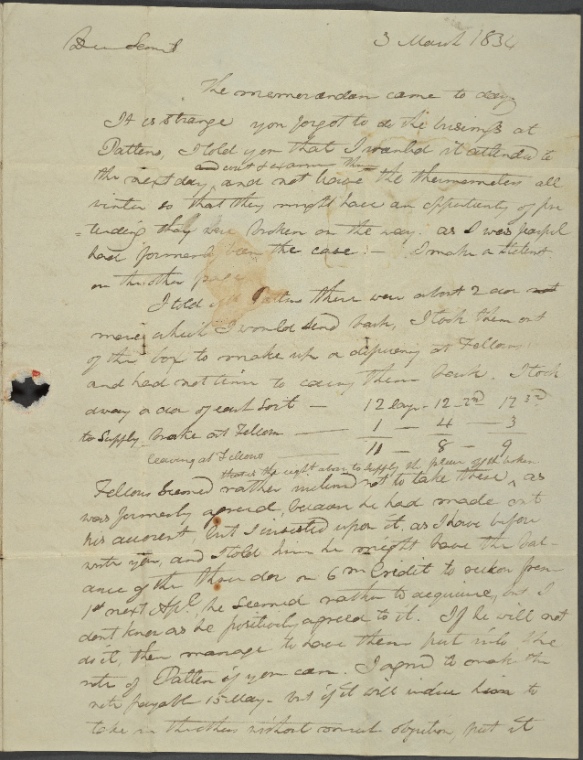 3 March 1834
Dear
The memorandom came to day
It is strange you forgot to do the business at
Patten, I told you that I wanted it attended to
and not have the
the next day, and not leave the thermometers all
winter so that they might have an oppertunity of pre
=tending they were broken on the way. as I was
had formerly been the case. — I make a
on the other page
I told Patten there were about 2 doz
more which I would send back, I took them out
of the box to make up a deficiency at Fellows
and had not time to carry them back. I took
away a doz of each sort — 12 Larg - 12 2nd 12 3rd
to Supply Brake at Fellows — 1 — 4 — 3
leaving at Fellows — 11 — 8 — 9
that is the right doz to supply the place of the broken
Fellows seemed rather not to take these, as
was formerly agreed, because he had made out
his account, but I insisted upon it, as I have before
wrote you, and I told him he might have the bal-
ance of the three doz on 6 m Credit to reckon from
1st next Apl. he seemed rather to acquiesce, but I
dont know as he positively agreed to it. If he will not
do it, then manage to have them put into the
note of Patten if you can. I agreed to make the
note payable 15 May - but if it will induce him to
take in the others without much objection, put it